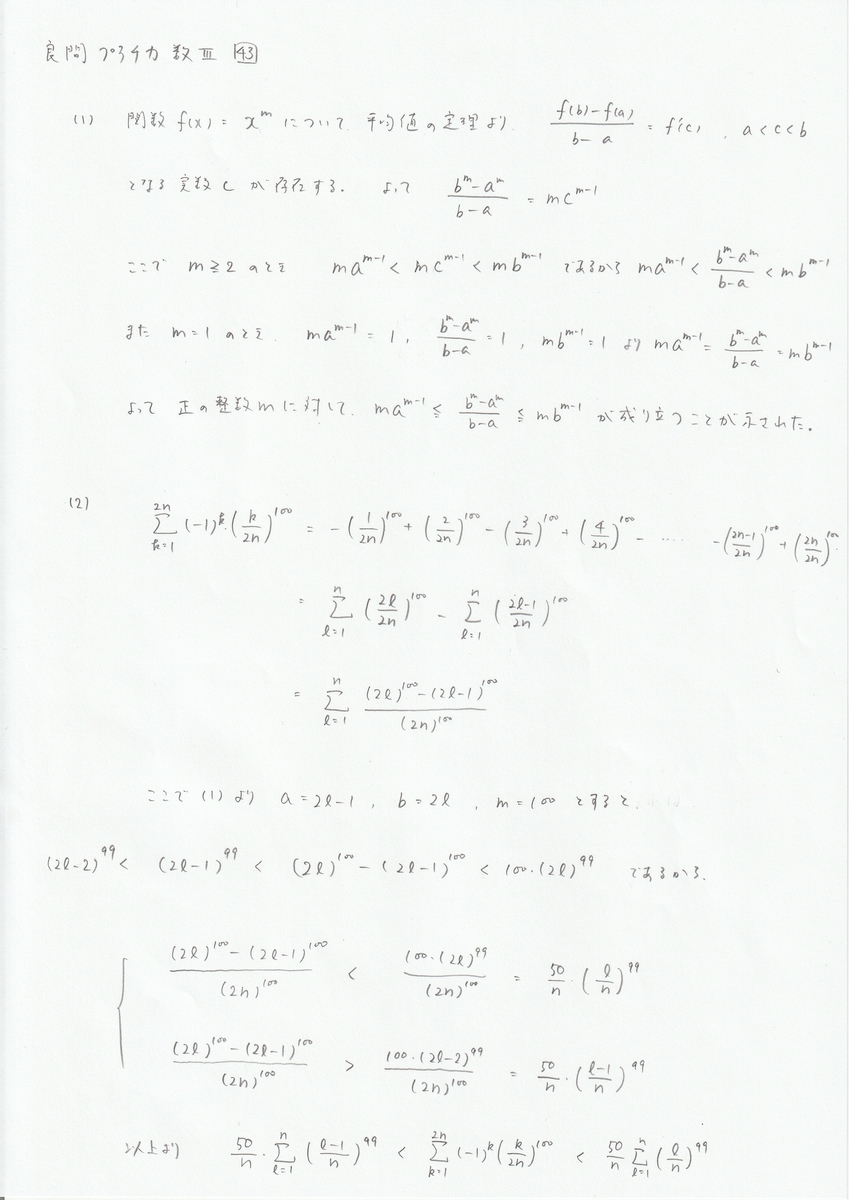 良問プラチカ数Ⅲ 43
(1) 関数 f(x) = x^m について、平均値の定理より、 (f(b)-f(a))/(b-a) = f'(c) , a<c<b
となる実数 c が存在する. よって (b^m-a^m)/(b-a) = mc^{m-1}
ここで m≧2 のとき ma^{m-1} < mc^{m-1} < mb^{m-1} であるから ma^{m-1} < (b^m-a^m)/(b-a) < mb^{m-1}
また m=1 のとき、 ma^{m-1} = 1, (b^m-a^m)/(b-a) = 1, mb^{m-1} = 1 より ma^{m-1} = (b^m-a^m)/(b-a) = mb^{m-1}
よって 正の整数 m に対して、 ma^{m-1} ≦ (b^m-a^m)/(b-a) ≦ mb^{m-1} が成り立つことが示された.
(2) Σ_{k=1}^{2n} (-1)^k (k/2n)^{100} = -(1/2n)^{100} + (2/2n)^{100} - (3/2n)^{100} + (4/2n)^{100} - ..... -((2n-1)/2n)^{100} + (2n/2n)^{100}
= Σ_{ℓ=1}^{n} (2ℓ/2n)^{100} - Σ_{ℓ=1}^{n} ((2ℓ-1)/2n)^{100}
= Σ_{ℓ=1}^{n} ((2ℓ)^{100}-(2ℓ-1)^{100})/(2n)^{100}
ここで (1) より a=2ℓ-1, b=2ℓ, m=100 とすると、
(2ℓ-2)^{99} < (2ℓ-1)^{99} < (2ℓ)^{100}-(2ℓ-1)^{100} < 100・(2ℓ)^{99} であるから、
((2ℓ)^{100}-(2ℓ-1)^{100})/(2n)^{100} < (100・(2ℓ)^{99})/(2n)^{100} = 50/n・(ℓ/n)^{99}
((2ℓ)^{100}-(2ℓ-1)^{100})/(2n)^{100} > (100・(2ℓ-2)^{99})/(2n)^{100} = 50/n・((ℓ-1)/n)^{99}
以上より 50/n・Σ_{ℓ=1}^{n} ((ℓ-1)/n)^{99} < Σ_{k=1}^{2n} (-1)^k (k/2n)^{100} < 50/n Σ_{ℓ=1}^{n} (ℓ/n)^{99}